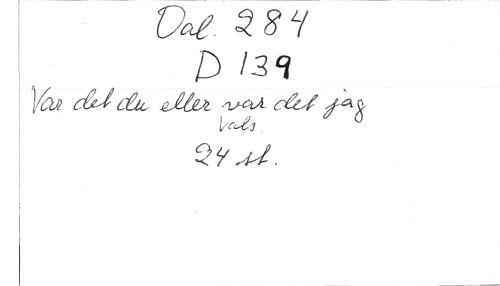 Dal. 284
D 139
Var det du eller var det jag
Vals.
24 st.